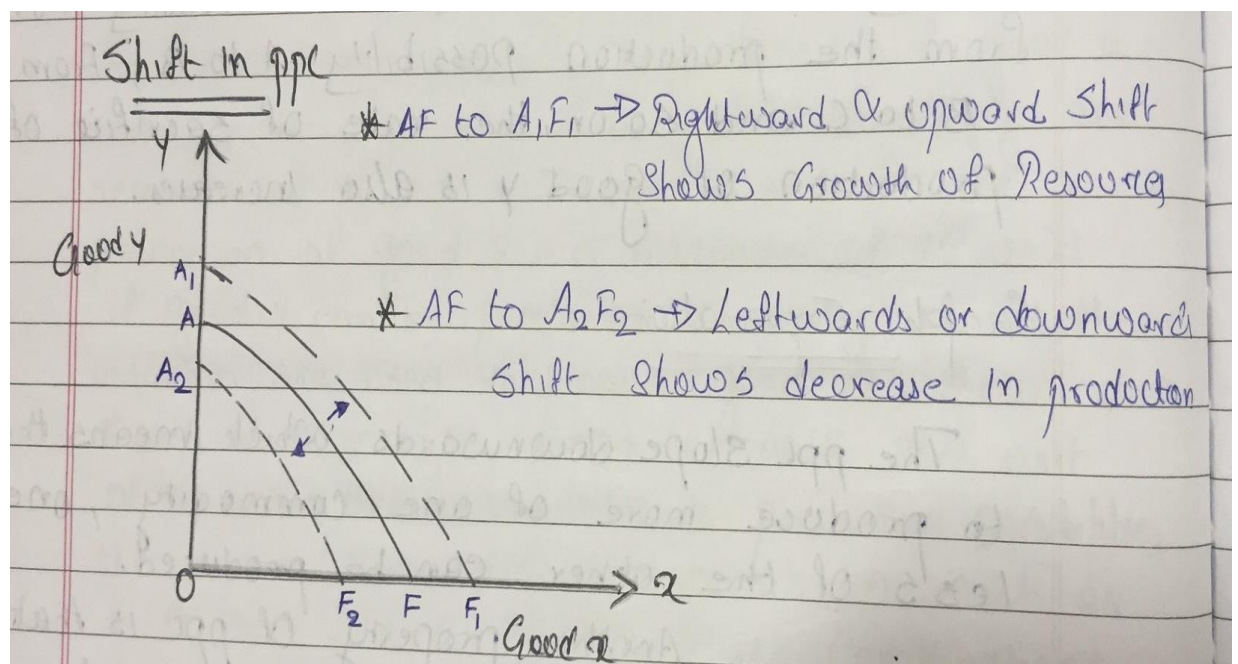 Shift in ppc
* AF to A₁F₁ → Rightward & upward Shift
Shows Growth of Resources
Y
Good Y
A₁
A
* AF to A₂F₂ → Leftwards or downward
A₂
Shift Shows decrease in prodocton
O
F₂ F F₁
x
Good x